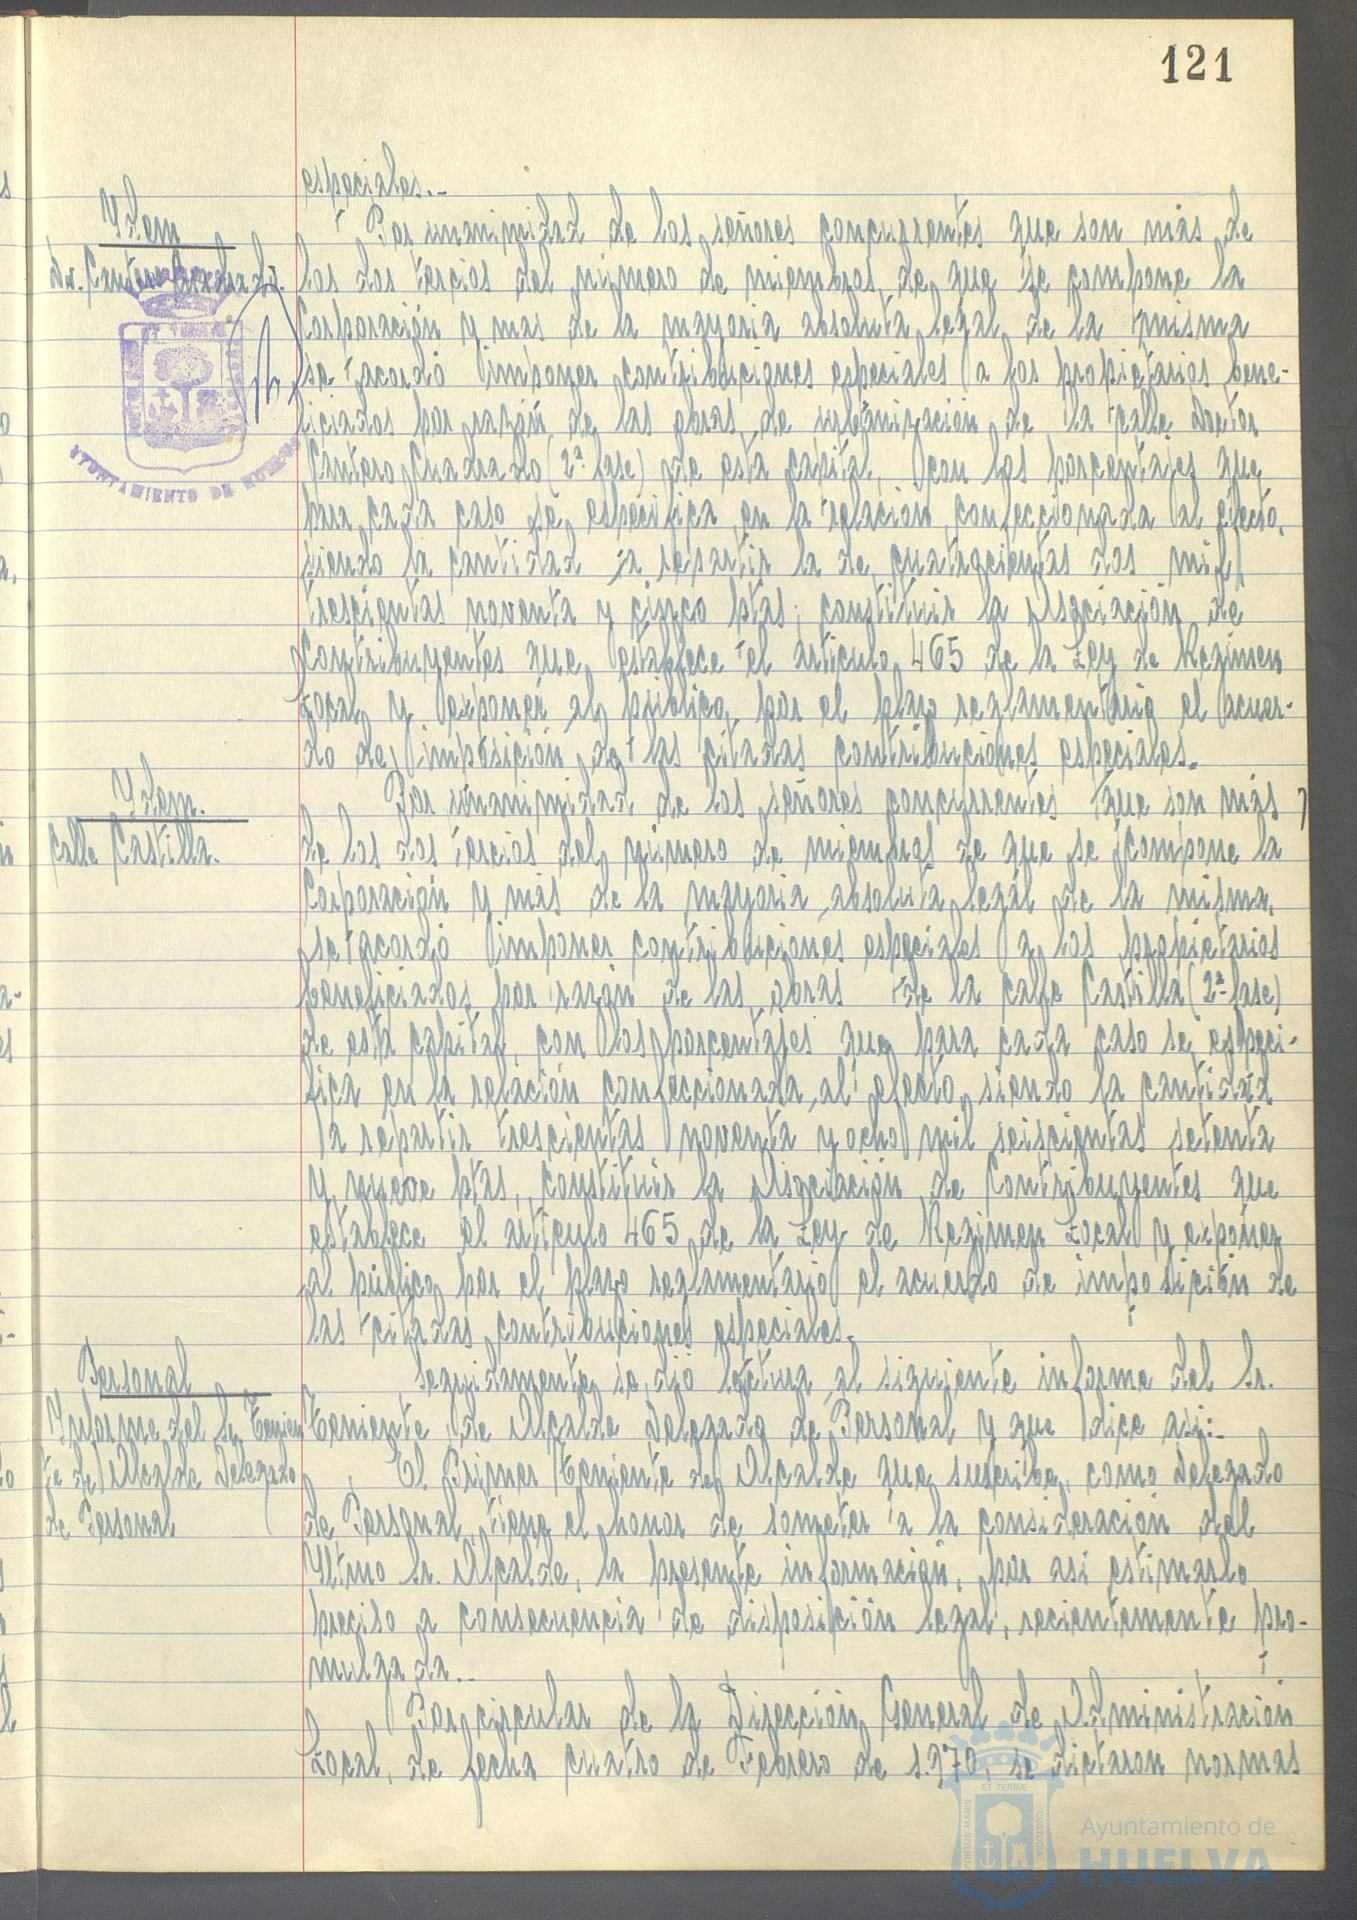 121
especiales.-
Ydem
Dr. Cantero Cuadrado.
Por unanimidad de los señores concurrentes que son más de
los dos tercios del número de miembros de que se compone la
Corporación y mas de la mayoria absoluta legal de la misma
se acordó imponer contribuciones especiales a los propietarios bene-
ficiados por razón de las obras de urbanización de la calle Doctor
Cantero Cuadrado (2ª fase) de esta capital, con los porcentajes que
para cada caso se especifica en la relación confeccionada al efecto,
siendo la cantidad a repartir la de cuatrocientas dos mil
trescientas noventa y cinco ptas; constituir la Asociación de
Contribuyentes que establece el artículo 465 de la Ley de Regimen
Local y exponer al público por el plazo reglamentario el acuer-
do de imposición de las citadas contribuciones especiales.
Ydem.
calle Castilla.
Por unanimidad de los señores concurrentes que son más
de los dos tercios del número de miembros de que se compone la
Corporación y más de la mayoria absoluta legal de la misma,
se acordó imponer contribuciones especiales a los propietarios
beneficiados por razón de las obras de la calle Castilla (2ª fase)
de esta capital, con los porcentajes que para cada caso se especi-
fica en la relación confeccionada al efecto, siendo la cantidad
a repartir trescientas noventa y ocho mil seiscientas setenta
y nueve ptas, constituir la Asociación de Contribuyentes que
establece el artículo 465 de la Ley de Regimen Local y exponer
al público por el plazo reglamentario el acuerdo de imposición de
las citadas contribuciones especiales.
Personal
Informe del Sr. Tenien
te de Alcalde Delegado
de Personal
Seguidamente se dió lectura al siguiente informe del Sr.
Teniente de Alcalde Delegado de Personal y que dice asi:-
El Primer Teniente de Alcalde que suscribe, como Delegado
de Personal, tiene el honor de someter a la consideración del
Iltmo Sr. Alcalde, la presente información, por asi estimarlo
preciso a consecuencia de disposición legal, recientemente pro-
mulgada..
Por circular de la Dirección General de Administración
Local, de fecha cuatro de Febrero de 1.970, se dictaron normas
AYUNTAMIENTO DE HUELVA
PORTUS MARIS
ET TERRÆ
CUSTODIA
Ayuntamiento de
HUELVA